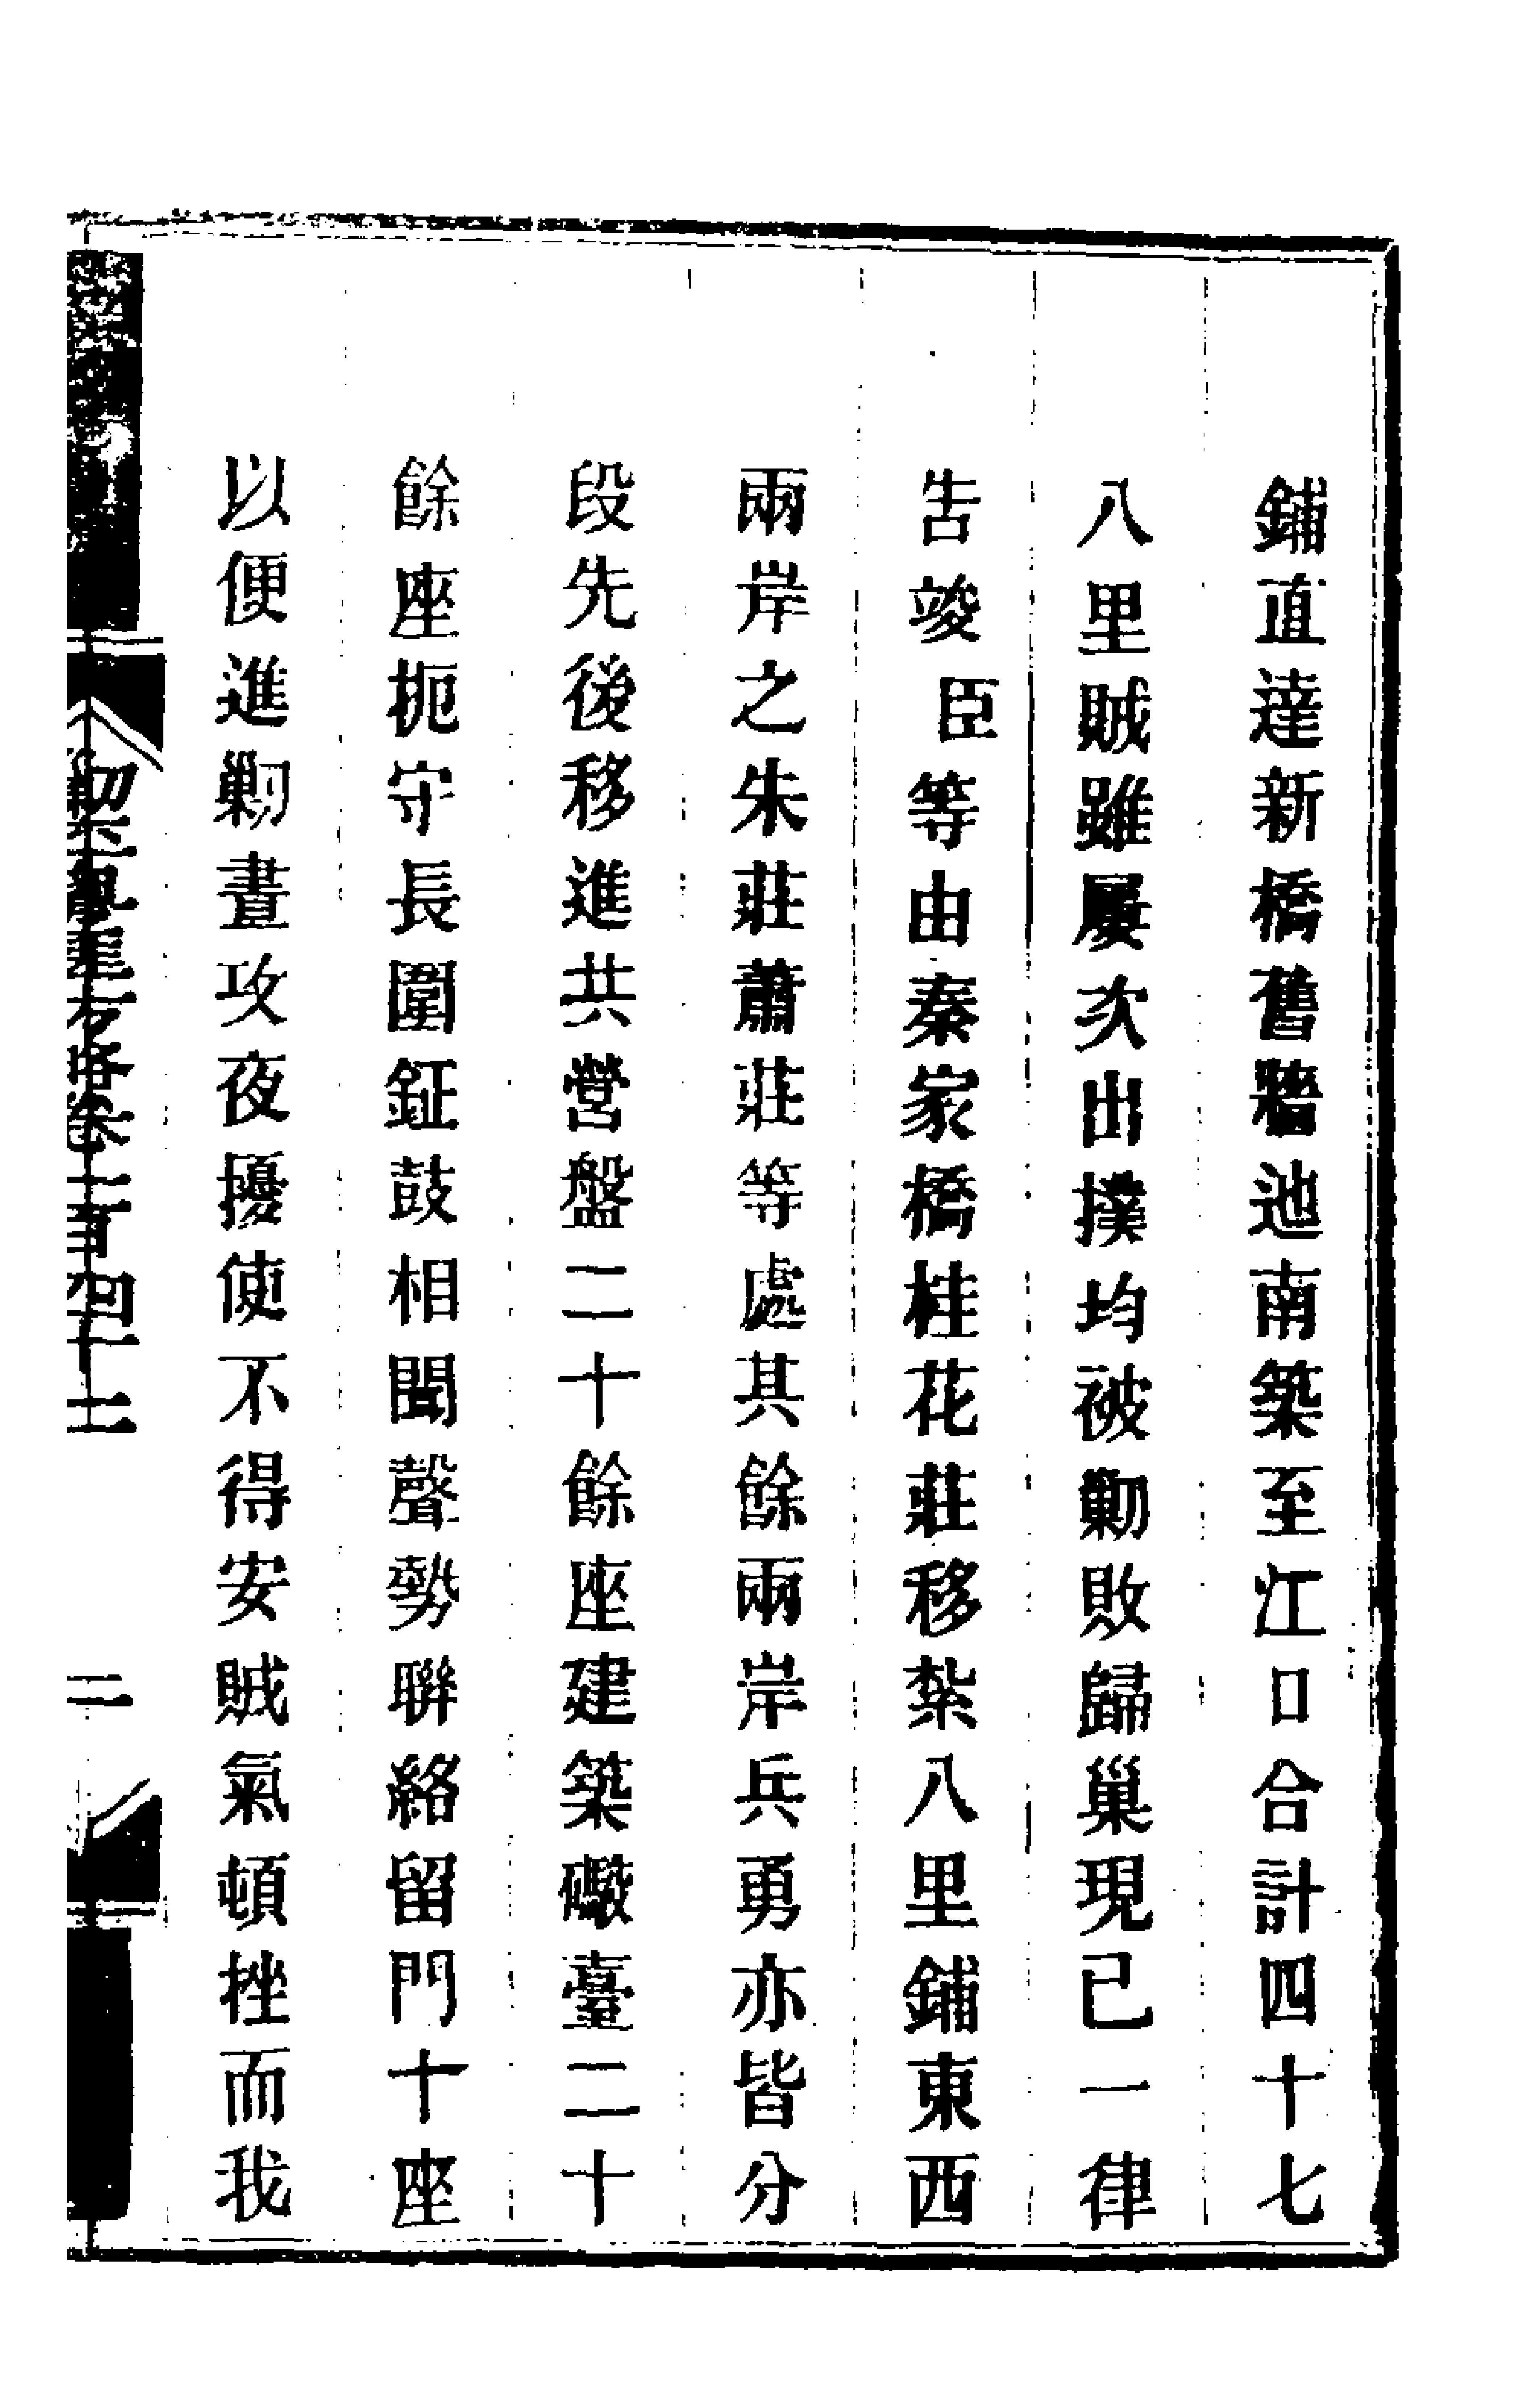 鋪直達新橋舊牆迆南築至江口合計四十七
八里賊雖屢次出撲均被勦敗歸巢現已一律
告竣臣等由秦家橋桂花莊移紮八里鋪東西
兩岸之朱莊蕭莊等處其餘兩岸兵勇亦皆分
段先後移進共營盤二十餘座建築礮臺二十
餘座扼守長圍鉦鼓相聞聲勢聯絡留門十座
以便進勦晝攻夜擾使不得安賊氣頓挫而我
方略卷一百四十二
二